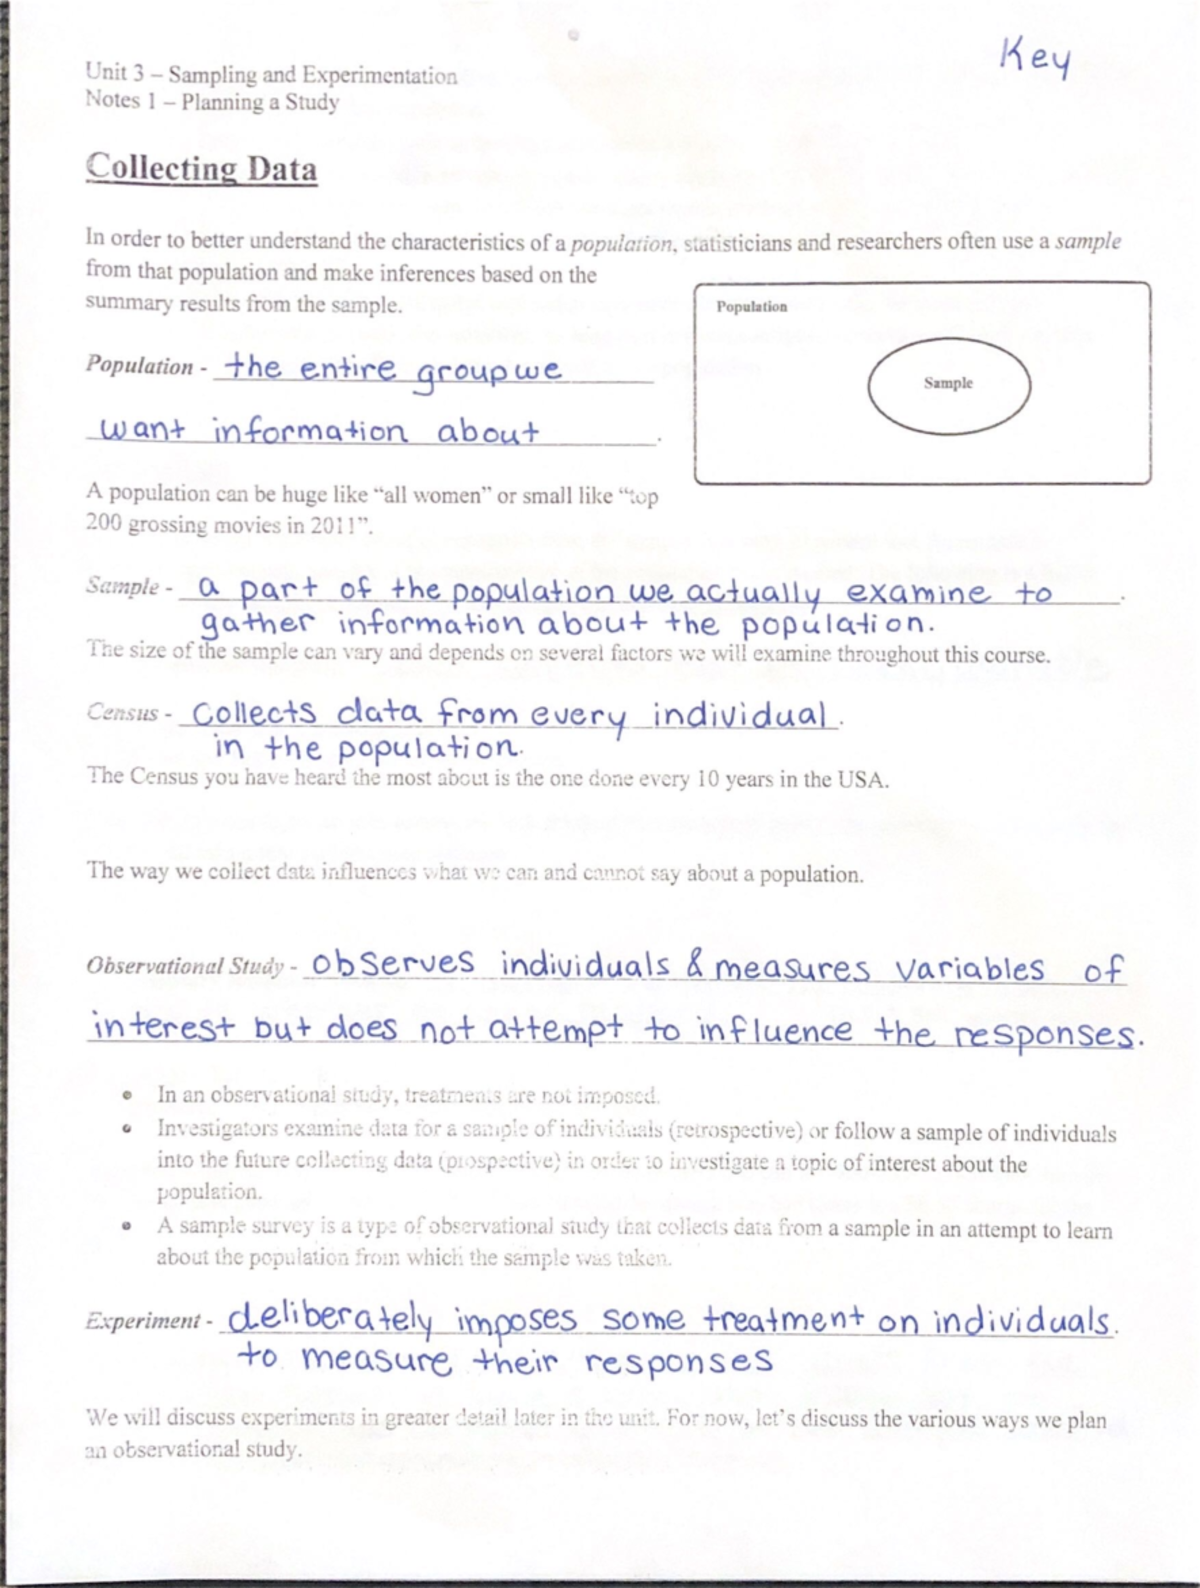 Key
Unit 3 – Sampling and Experimentation
Notes 1 – Planning a Study
Collecting Data
In order to better understand the characteristics of a population, statisticians and researchers often use a sample
from that population and make inferences based on the
summary results from the sample.
Population
Sample
Population - the entire group we
want information about.
A population can be huge like “all women” or small like “top
200 grossing movies in 2011”.
Sample - a part of the population we actually examine to.
gather information about the population.
The size of the sample can vary and depends on several factors we will examine throughout this course.
Census - Collects data from every individual.
in the population.
The Census you have heard the most about is the one done every 10 years in the USA.
The way we collect data influences what we can and cannot say about a population.
Observational Study - observes individuals & measures variables of
interest but does not attempt to influence the responses.
• In an observational study, treatments are not imposed.
• Investigators examine data for a sample of individuals (retrospective) or follow a sample of individuals
into the future collecting data (prospective) in order to investigate a topic of interest about the
population.
• A sample survey is a type of observational study that collects data from a sample in an attempt to learn
about the population from which the sample was taken.
Experiment - deliberately imposes some treatment on individuals.
to measure their responses
We will discuss experiments in greater detail later in the unit. For now, let’s discuss the various ways we plan
an observational study.